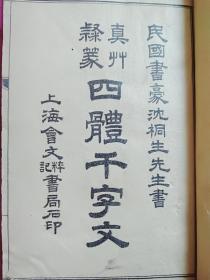 民國書豪沈桐生先生書
真艸
隸篆
四體千字文
上海會文粹記書局石印